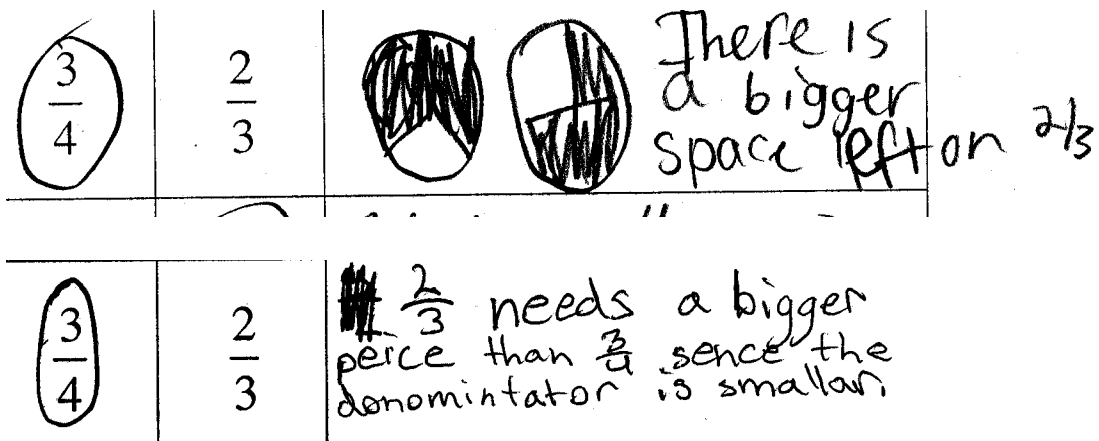 3/4 2/3 There is
a bigger
space left on 2/3
3/4 2/3 2/3 needs a bigger
peice than 3/4 sence the
donomintator is smallar.